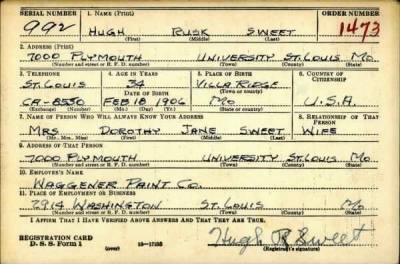 SERIAL NUMBER 1. NAME (Print) ORDER NUMBER
992 HUGH RUSK SWEET 1473
(First) (Middle) (Last)
2. ADDRESS (Print)
7000 PLYMOUTH UNIVERSITY ST. LOUIS MO.
(Number and street or R. F. D. number) (Town) (County) (State)
3. TELEPHONE 4. AGE IN YEARS 5. PLACE OF BIRTH 6. COUNTRY OF CITIZENSHIP
ST. LOUIS 34 VILLA RIDGE
DATE OF BIRTH (Town or county)
CA-8550 FEB 18 1906 MO U.S.A.
(Exchange) (Number) (Mo.) (Day) (Yr.) (State or country)
7. NAME OF PERSON WHO WILL ALWAYS KNOW YOUR ADDRESS 8. RELATIONSHIP OF THAT PERSON
MRS DOROTHY JANE SWEET WIFE
(Mr., Mrs., Miss) (First) (Middle) (Last)
9. ADDRESS OF THAT PERSON
7000 PLYMOUTH UNIVERSITY ST. LOUIS MO.
(Number and street or R. F. D. number) (Town) (County) (State)
10. EMPLOYER'S NAME
WAGGENER PAINT CO.
11. PLACE OF EMPLOYMENT OR BUSINESS
2914 WASHINGTON ST. LOUIS MO.
(Number and street or R. F. D. number) (Town) (County) (State)
I AFFIRM THAT I HAVE VERIFIED ABOVE ANSWERS AND THAT THEY ARE TRUE.
REGISTRATION CARD
D. S. S. Form 1 (over) Hugh R Sweet
(Registrant's signature)